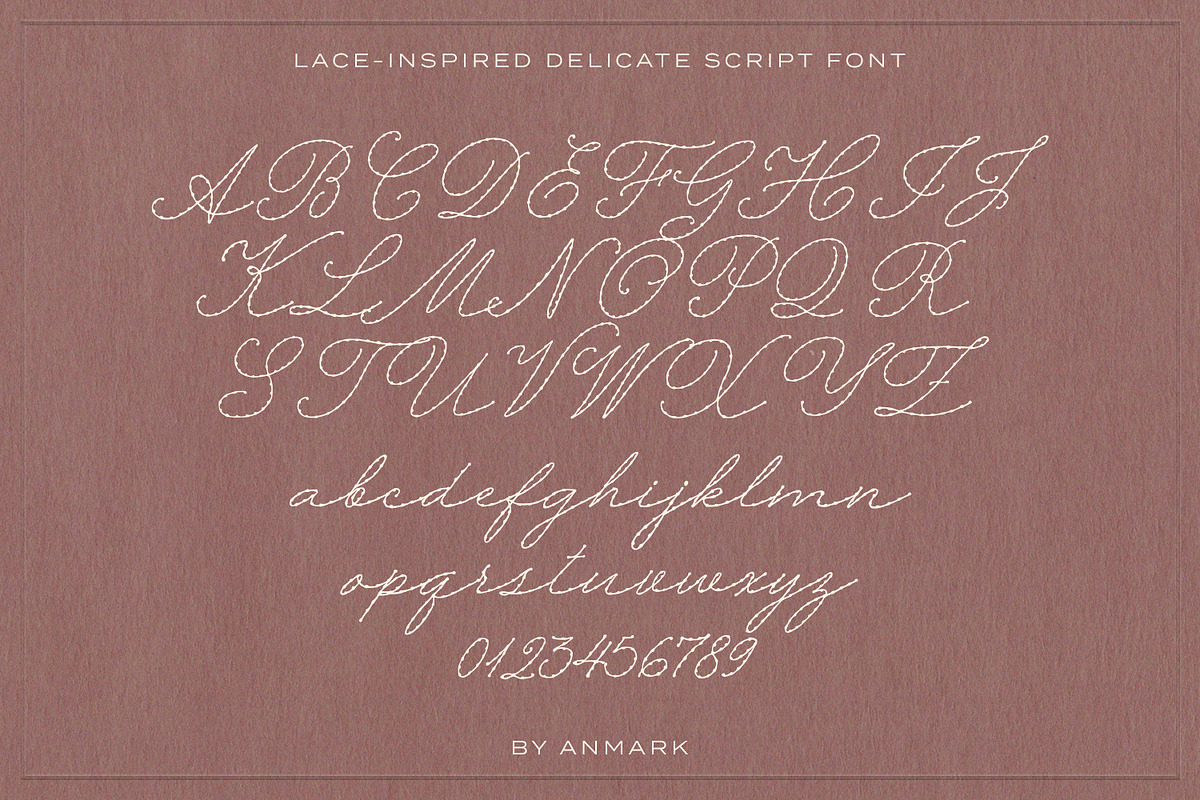 LACE-INSPIRED DELICATE SCRIPT FONT
ABCDEFGHIJ
KLMNOPQR
STUVWXYZ
abcdefghijklmn
opqrstuvwxyz
0123456789
BY ANMARK